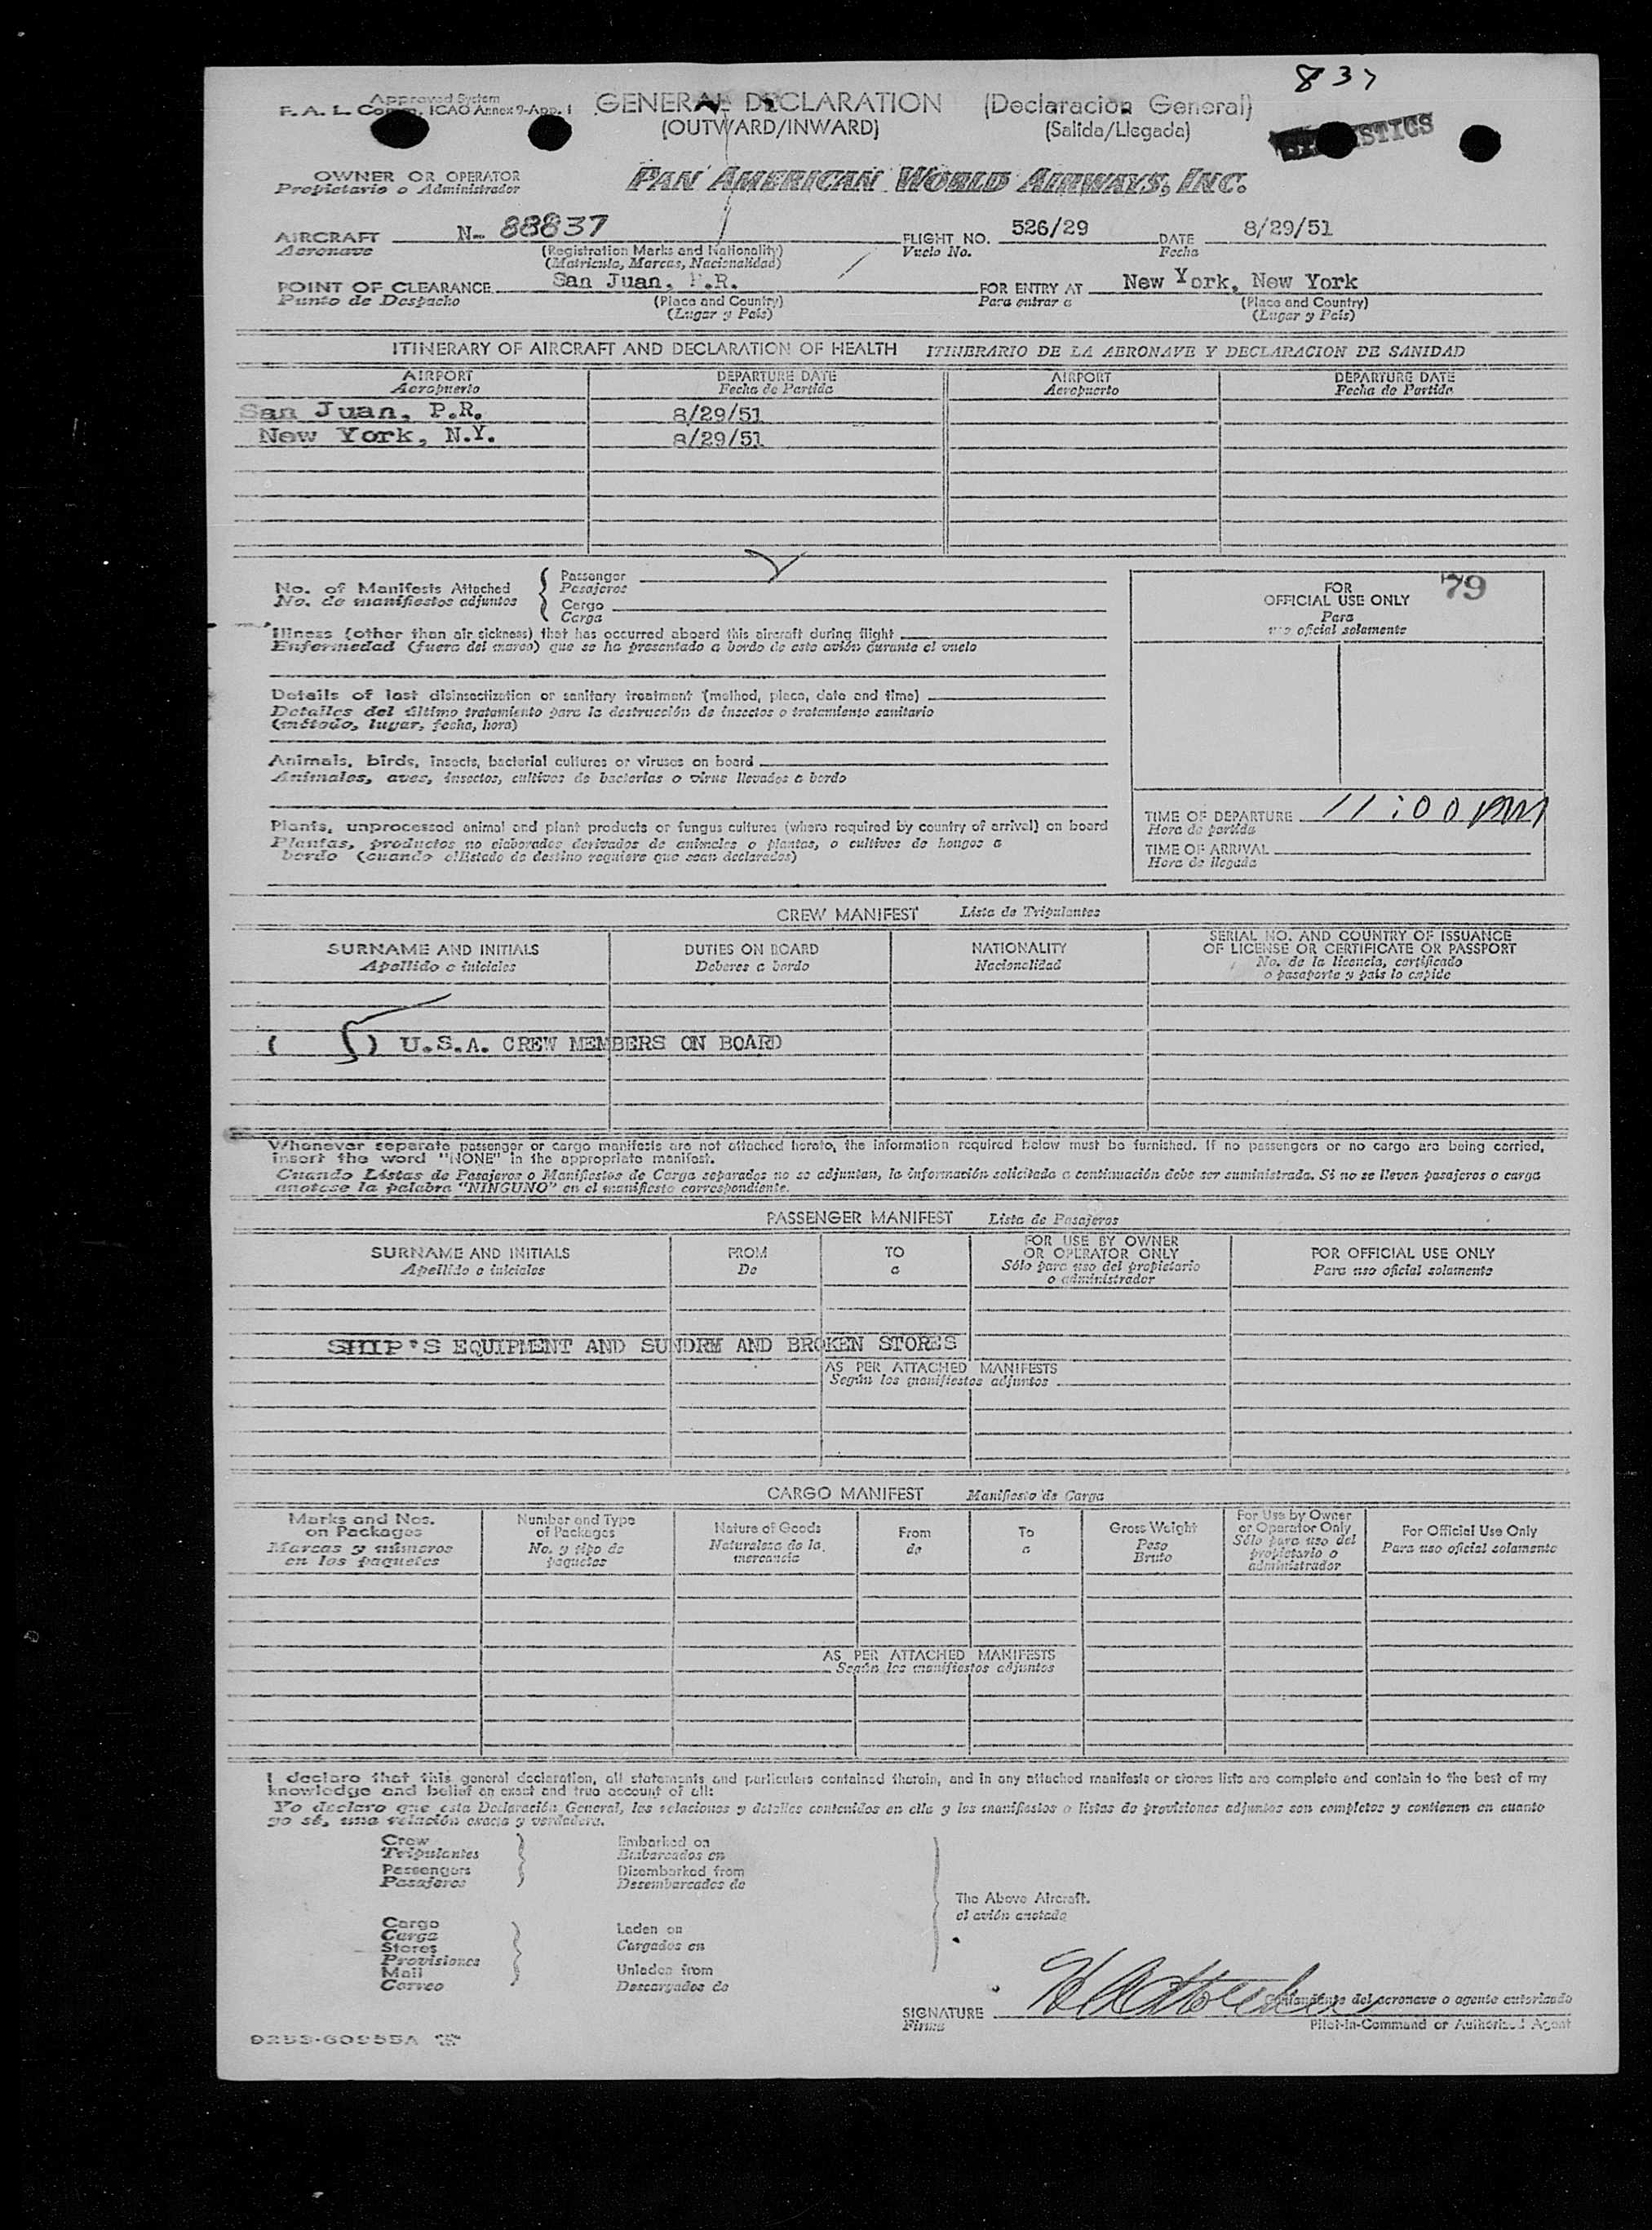 837
Approved System
F. A. L. Comm. ICAO Annex 9-App. 1
GENERAL DECLARATION (Declaración General)
(OUTWARD/INWARD) (Salida/Llegada)
OWNER OR OPERATOR
Propietario o Administrador
PAN AMERICAN WORLD AIRWAYS, INC.
AIRCRAFT N- 88837 FLIGHT NO. 526/29 DATE 8/29/51
Aeronave (Registration Marks and Nationality) Vuelo No. Fecha
(Matricula, Marcas, Nacionalidad)
POINT OF CLEARANCE San Juan, P.R. FOR ENTRY AT New York, New York
Punto de Despacho (Place and Country) Para entrar a (Place and Country)
(Lugar y País) (Lugar y País)
ITINERARY OF AIRCRAFT AND DECLARATION OF HEALTH ITINERARIO DE LA AERONAVE Y DECLARACION DE SANIDAD
AIRPORT DEPARTURE DATE AIRPORT DEPARTURE DATE
Aeropuerto Fecha de Partida Aeropuerto Fecha de Partida
San Juan, P.R. 8/29/51
New York, N.Y. 8/29/51
No. of Manifests Attached
No. de manifiestos adjuntos
Passenger
Pasajeros
Cargo
Carga
FOR 79
OFFICIAL USE ONLY
Para
uso oficial solamente
Illness (other than air sickness) that has occurred aboard this aircraft during flight
Enfermedad (fuera del mareo) que se ha presentado a bordo de este avión durante el vuelo
Details of last disinsectization or sanitary treatment (method, place, date and time)
Detalles del último tratamiento para la destrucción de insectos o tratamiento sanitario
(método, lugar, fecha, hora)
Animals, birds, insects, bacterial cultures or viruses on board
Animales, aves, insectos, cultivos de bacterias o virus llevados a bordo
Plants, unprocessed animal and plant products or fungus cultures (where required by country of arrival) on board
Plantas, productos no elaborados derivados de animales o plantas, o cultivos de hongos a
bordo (cuando el Estado de destino requiere que sean declarados)
TIME OF DEPARTURE 11:00 PM
Hora de partida
TIME OF ARRIVAL
Hora de llegada
CREW MANIFEST Lista de Tripulantes
SURNAME AND INITIALS DUTIES ON BOARD NATIONALITY SERIAL NO. AND COUNTRY OF ISSUANCE
OF LICENSE OR CERTIFICATE OR PASSPORT
Apellido e iniciales Deberes a bordo Nacionalidad No. de la licencia, certificado
o pasaporte y país lo expide
( 5 ) U.S.A. CREW MEMBERS ON BOARD
Whenever separate passenger or cargo manifests are not attached hereto, the information required below must be furnished. If no passengers or no cargo are being carried,
insert the word "NONE" in the appropriate manifest.
Cuando Listas de Pasajeros o Manifiestos de Carga separados no se adjuntan, la información solicitada a continuación debe ser suministrada. Si no se lleven pasajeros o carga
anotese la palabra "NINGUNO" en el manifiesto correspondiente.
PASSENGER MANIFEST Lista de Pasajeros
SURNAME AND INITIALS FROM TO FOR USE BY OWNER
OR OPERATOR ONLY FOR OFFICIAL USE ONLY
Apellido e iniciales De a Sólo para uso del propietario
o administrador Para uso oficial solamente
SHIP'S EQUIPMENT AND SUNDRY AND BROKEN STORES
AS PER ATTACHED MANIFESTS
Según los manifiestos adjuntos
CARGO MANIFEST Manifiesto de Carga
Marks and Nos.
on Packages
Marcas y números
en los paquetes
Number and Type
of Packages
No. y tipo de
paquetes
Nature of Goods
Naturaleza de la
mercancía
From
de
To
a
Gross Weight
Peso
Bruto
For Use by Owner
or Operator Only
Sólo para uso del
propietario o
administrador
For Official Use Only
Para uso oficial solamente
AS PER ATTACHED MANIFESTS
Según los manifiestos adjuntos
I declare that this general declaration, all statements and particulars contained therein, and in any attached manifests or stores lists are complete and contain to the best of my
knowledge and belief an exact and true account of all:
Yo declaro que esta Declaración General, las relaciones y detalles contenidos en ella y los manifiestos o listas de provisiones adjuntos son completos y contienen en cuanto
yo sé, una relación exacta y verdadera.
Crew
Tripulantes
Passengers
Pasajeros
Embarked on
Embarcados en
Disembarked from
Desembarcados de
The Above Aircraft.
el avión anotado
Cargo
Carga
Stores
Provisiones
Mail
Correo
Laden on
Cargados en
Unladen from
Descargados de
SIGNATURE
Firma
Comandante del aeronave o agente autorizado
Pilot-in-Command or Authorized Agent